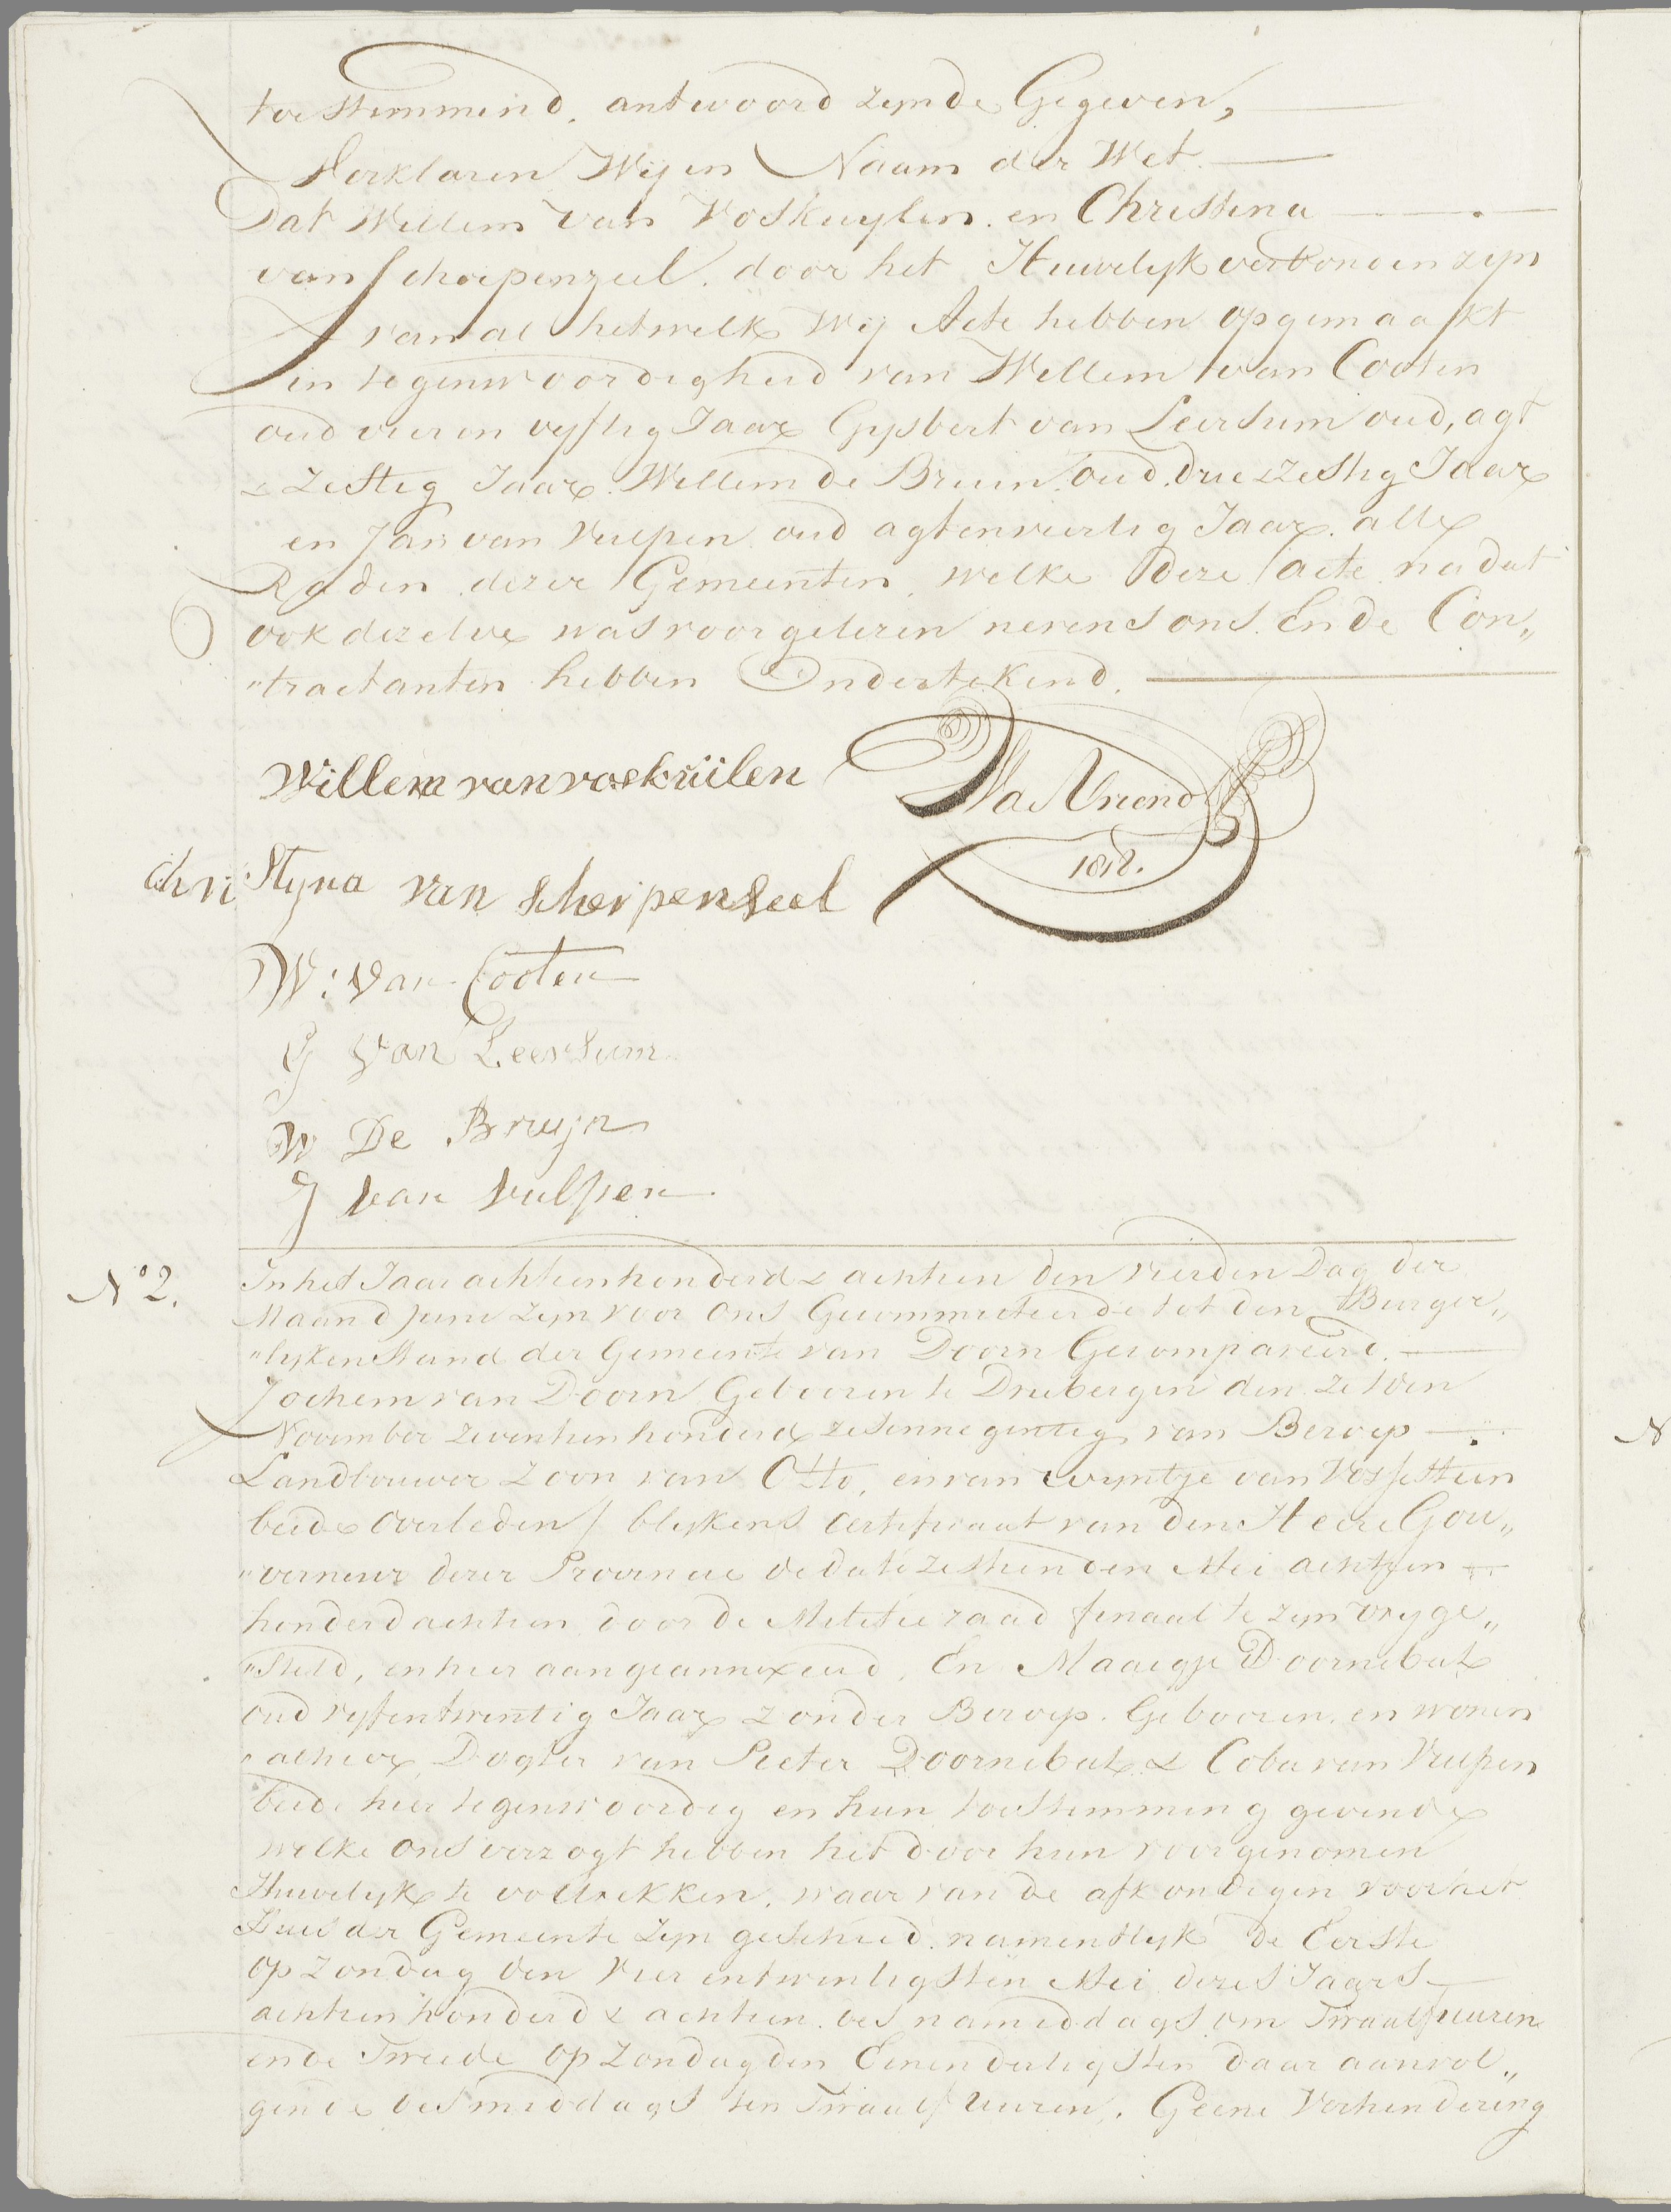 toestemmend. antwoord zynde Gegeven,
Verklaren Wij in Naam der Wet
Dat Willem van Voskuylen. en Christina
van Scherpenzeel. door het Huwelyk verbonden zyn
van al hetwelk Wij Acte hebben opgemaakt
in tegenwoordigheid van Willem van Cooten
oud vier en vyftig Jaar Gysbert van Leersum oud, agt
& Zestig Jaar. Willem de Bruin. oud. drie & Zestig Jaar
en Jan van Vulpen oud agtenveertig Jaar. alle
Raden dezer Gemeenten, welke Deze acte nadat
ook dezelve was voorgelezen nevens ons. En de Con„
„tractanten hebben Ondertekend.
Willem van voskuilen
Vriend
1818.
chri Styna van scherpenseel
W: van Cooten
G van Leersum
W De Bruyn
J van Vulpen
N° 2.
In het Jaar achtienhonderd & achtien den vierden Dag der
Maand Juni zyn voor ons Gecommitteerde tot den Burger„
„lyken Stand der Gemeente van Doorn Gecompareerd.
Jochem van Doorn Gebooren te Driebergen den zesden
November zeventienhonderd zesennegentig van Beroep
Landbouwer Zoon van Otto, en van Wyntje van Vossesteen
beide Overleden / blykens Certificaat van den Heere Gou„
„verneur dezer Provincie de dato zestienden Mei achtien
honderd achtien door de Militie raad finaal te zyn vryge„
„steld, en hier aan geannexeerd. En Maaigje Doornebal
oud vyfentwintig Jaar zonder Beroep. Gebooren. en wonen
„achtig Dogter van Pieter Doornebal & Coba van Vulpen
beide hier tegenwoordig en hun toestemming gevende
welke ons verzogt hebben het door hun voorgenomen
Huwelyk te voltrekken, waar van de afkondigen voor het
Huis der Gemeente zyn geschied. namentlyk de Eerste
op Zondag den Vierentwintigsten Mei dezes Jaars
achtienhonderd & achtien des namiddags om Twaalf uuren
en de Tweede op Zondag den Eenendertigsten daar aanvol„
gende des middags ten Twaalf Uuren. Geene Verhindering
N